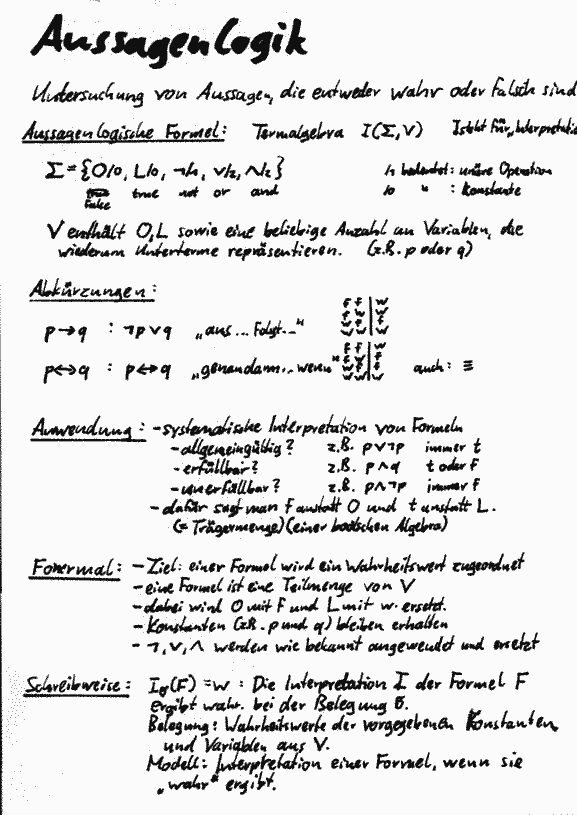 Aussagenlogik
Untersuchung von Aussagen, die entweder wahr oder falsch sind
Aussagenlogische Formel: Termalgebra I(Σ,V) I steht für „Interpretation
Σ={O/0, L/0, ¬/1, ∨/2, ∧/2} /1 bedeutet: unäre Operation
true not or and /0 " : Konstante
false
V enthält O,L sowie eine beliebige Anzahl an Variablen, die
wiederum Unterterme repräsentieren. (z.B. p oder q)
Abkürzungen:
p→q : ¬p∨q „aus... folgt..."
p↔q : p↔q „genau dann.. wenn" auch: ≡
Anwendung: -systematische Interpretation von Formeln
-allgemeingültig? z.B. p∨¬p immer t
-erfüllbar? z.B. p∧q t oder f
-unerfüllbar? z.B. p∧¬p immer f
-dafür sagt man f anstatt O und t anstatt L.
(= Trägermenge) (einer boolschen Algebra)
Formermal: -Ziel: einer Formel wird ein Wahrheitswert zugeordnet
-eine Formel ist eine Teilmenge von V
-dabei wird O mit f und L mit w ersetzt.
-Konstanten (z.B. p und q) bleiben erhalten
- ¬,∨,∧ werden wie bekannt angewendet und ersetzt
Schreibweise: (F) =w : Die Interpretation I der Formel F
ergibt wahr. bei der Belegung
Belegung: Wahrheitswerte der vorgegebenen Konstanten,
und Variablen aus V.
Modell: Interpretation einer Formel, wenn sie
„wahr" ergibt.